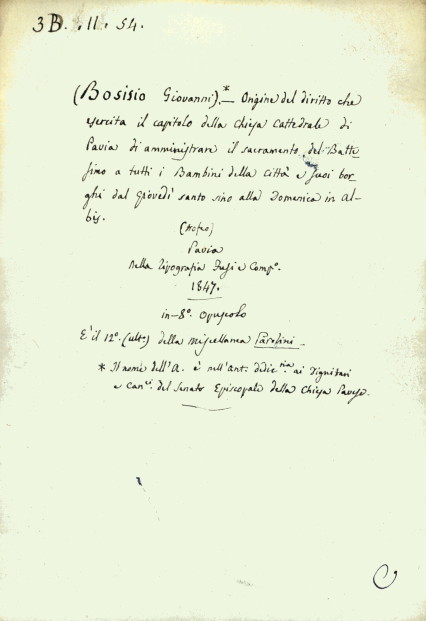 3B. .II. 54.
(Bosisio Giovanni).* — Origine del diritto che
esercita il capitolo della Chiesa Cattedrale di
Pavia di amministrare il sacramento del Batte
simo a tutti i Bambini della Città e suoi bor
ghi dal Giovedì santo sino alla Domenica in Al-
bis.
Pavia
Nella Tipografia Fusi e Compº.
1847.
in-8º. Opuscolo
È il 12º. (ult.) della Miscellanea Parolini.
* Il nome dell'A. è nell'Ant. dedic.ria ai Dignitari
e Can.ci del Senato Episcopale della Chiesa Pavese.